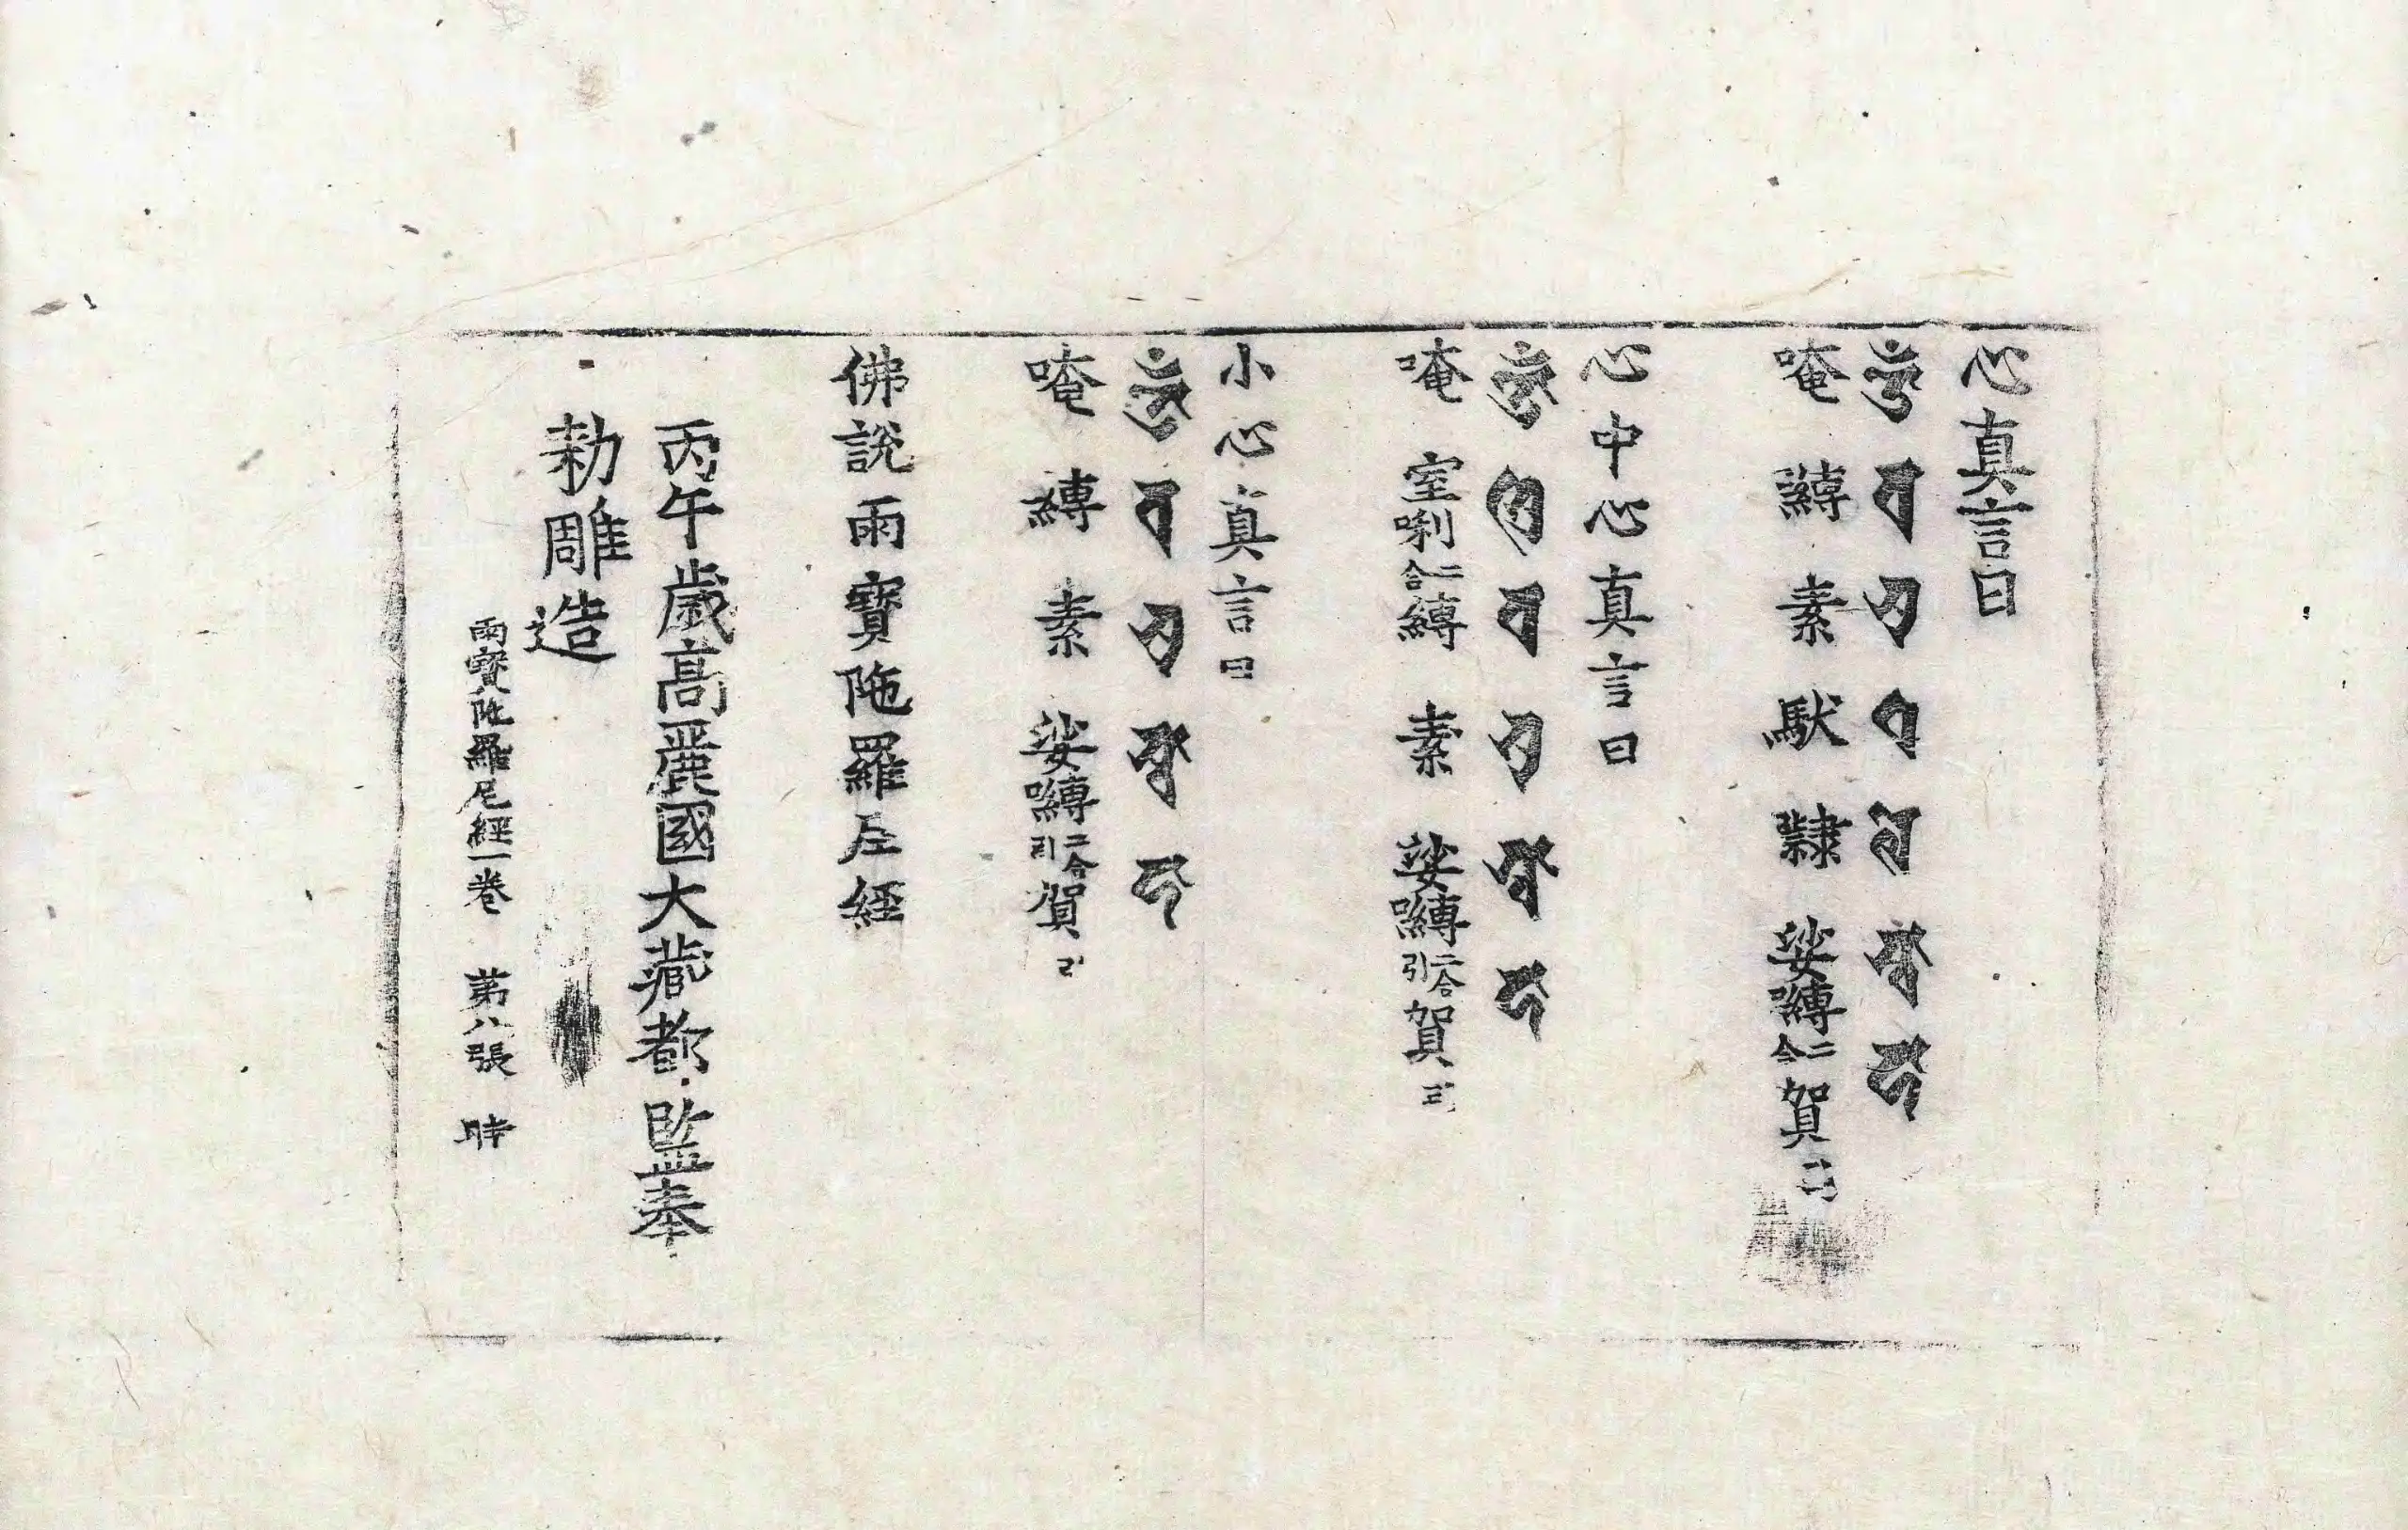 心真言曰
𑖌𑖼 𑖪 𑖭𑖲 𑖠 𑖨𑖸 𑖭𑖿𑖪𑖯 𑖮𑖯
唵 縛 素 馱 隸 娑嚩二合賀
心中心真言曰
𑖌𑖼 𑖫𑖿𑖨𑖱 𑖪 𑖭𑖲 𑖭𑖿𑖪𑖯 𑖮𑖯
唵 室唎二合縛 素 娑嚩二合引賀
小心真言曰
𑖌𑖼 𑖪 𑖭𑖲 𑖭𑖿𑖪𑖯 𑖮𑖯
唵 縛 素 娑嚩二合引賀
佛說雨寶陁羅尼經
丙午歲高麗國大藏都監奉
勅雕造
雨寶陁羅尼經一卷 第八張 時